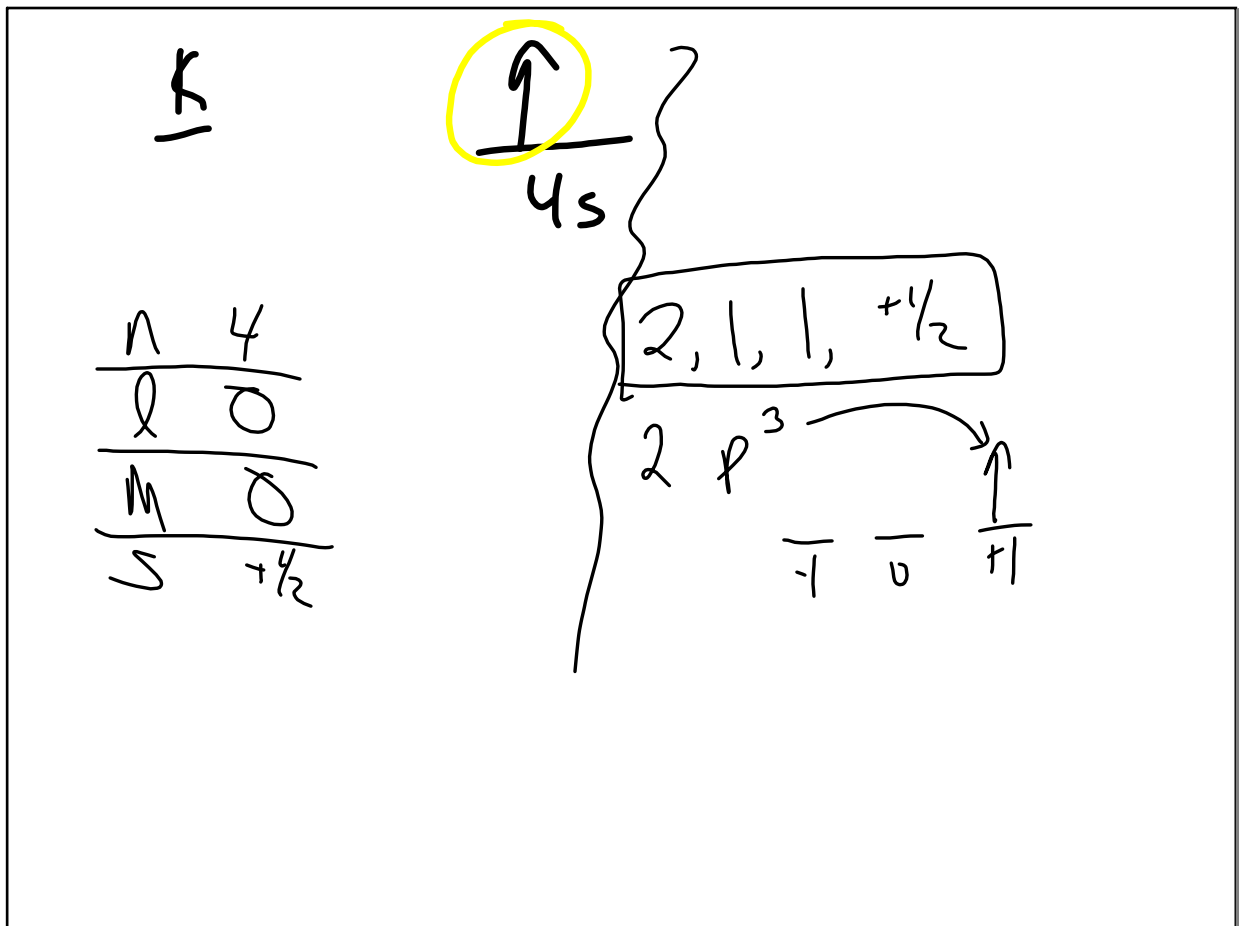 K
4s
n 4
l 0
m 0
s +1/2
2, 1, 1, +1/2
2 p³
-1 0 +1